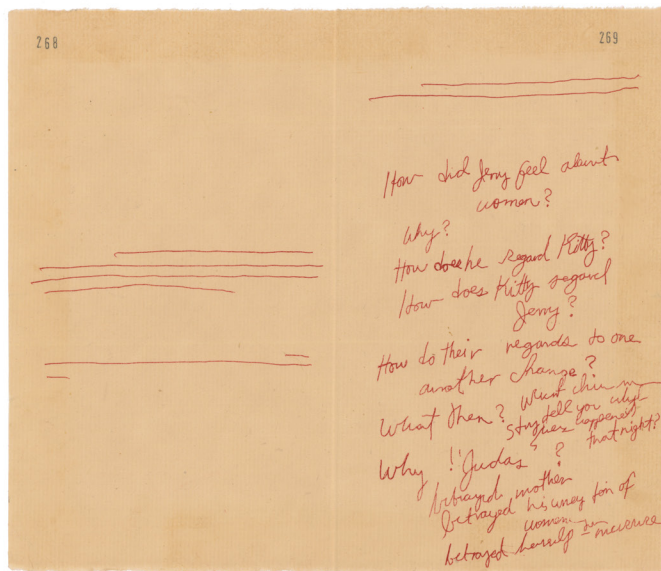 268
269
How did Jerry feel about
women?
Why?
How does he regard Kitty?
How does Kitty regard
Jerry?
How do their regards to one
another change?
What then? What
story tell you why
happened
that night?
Why "Judas"?
betrayed mother
betrayed his of
women
betrayed herself